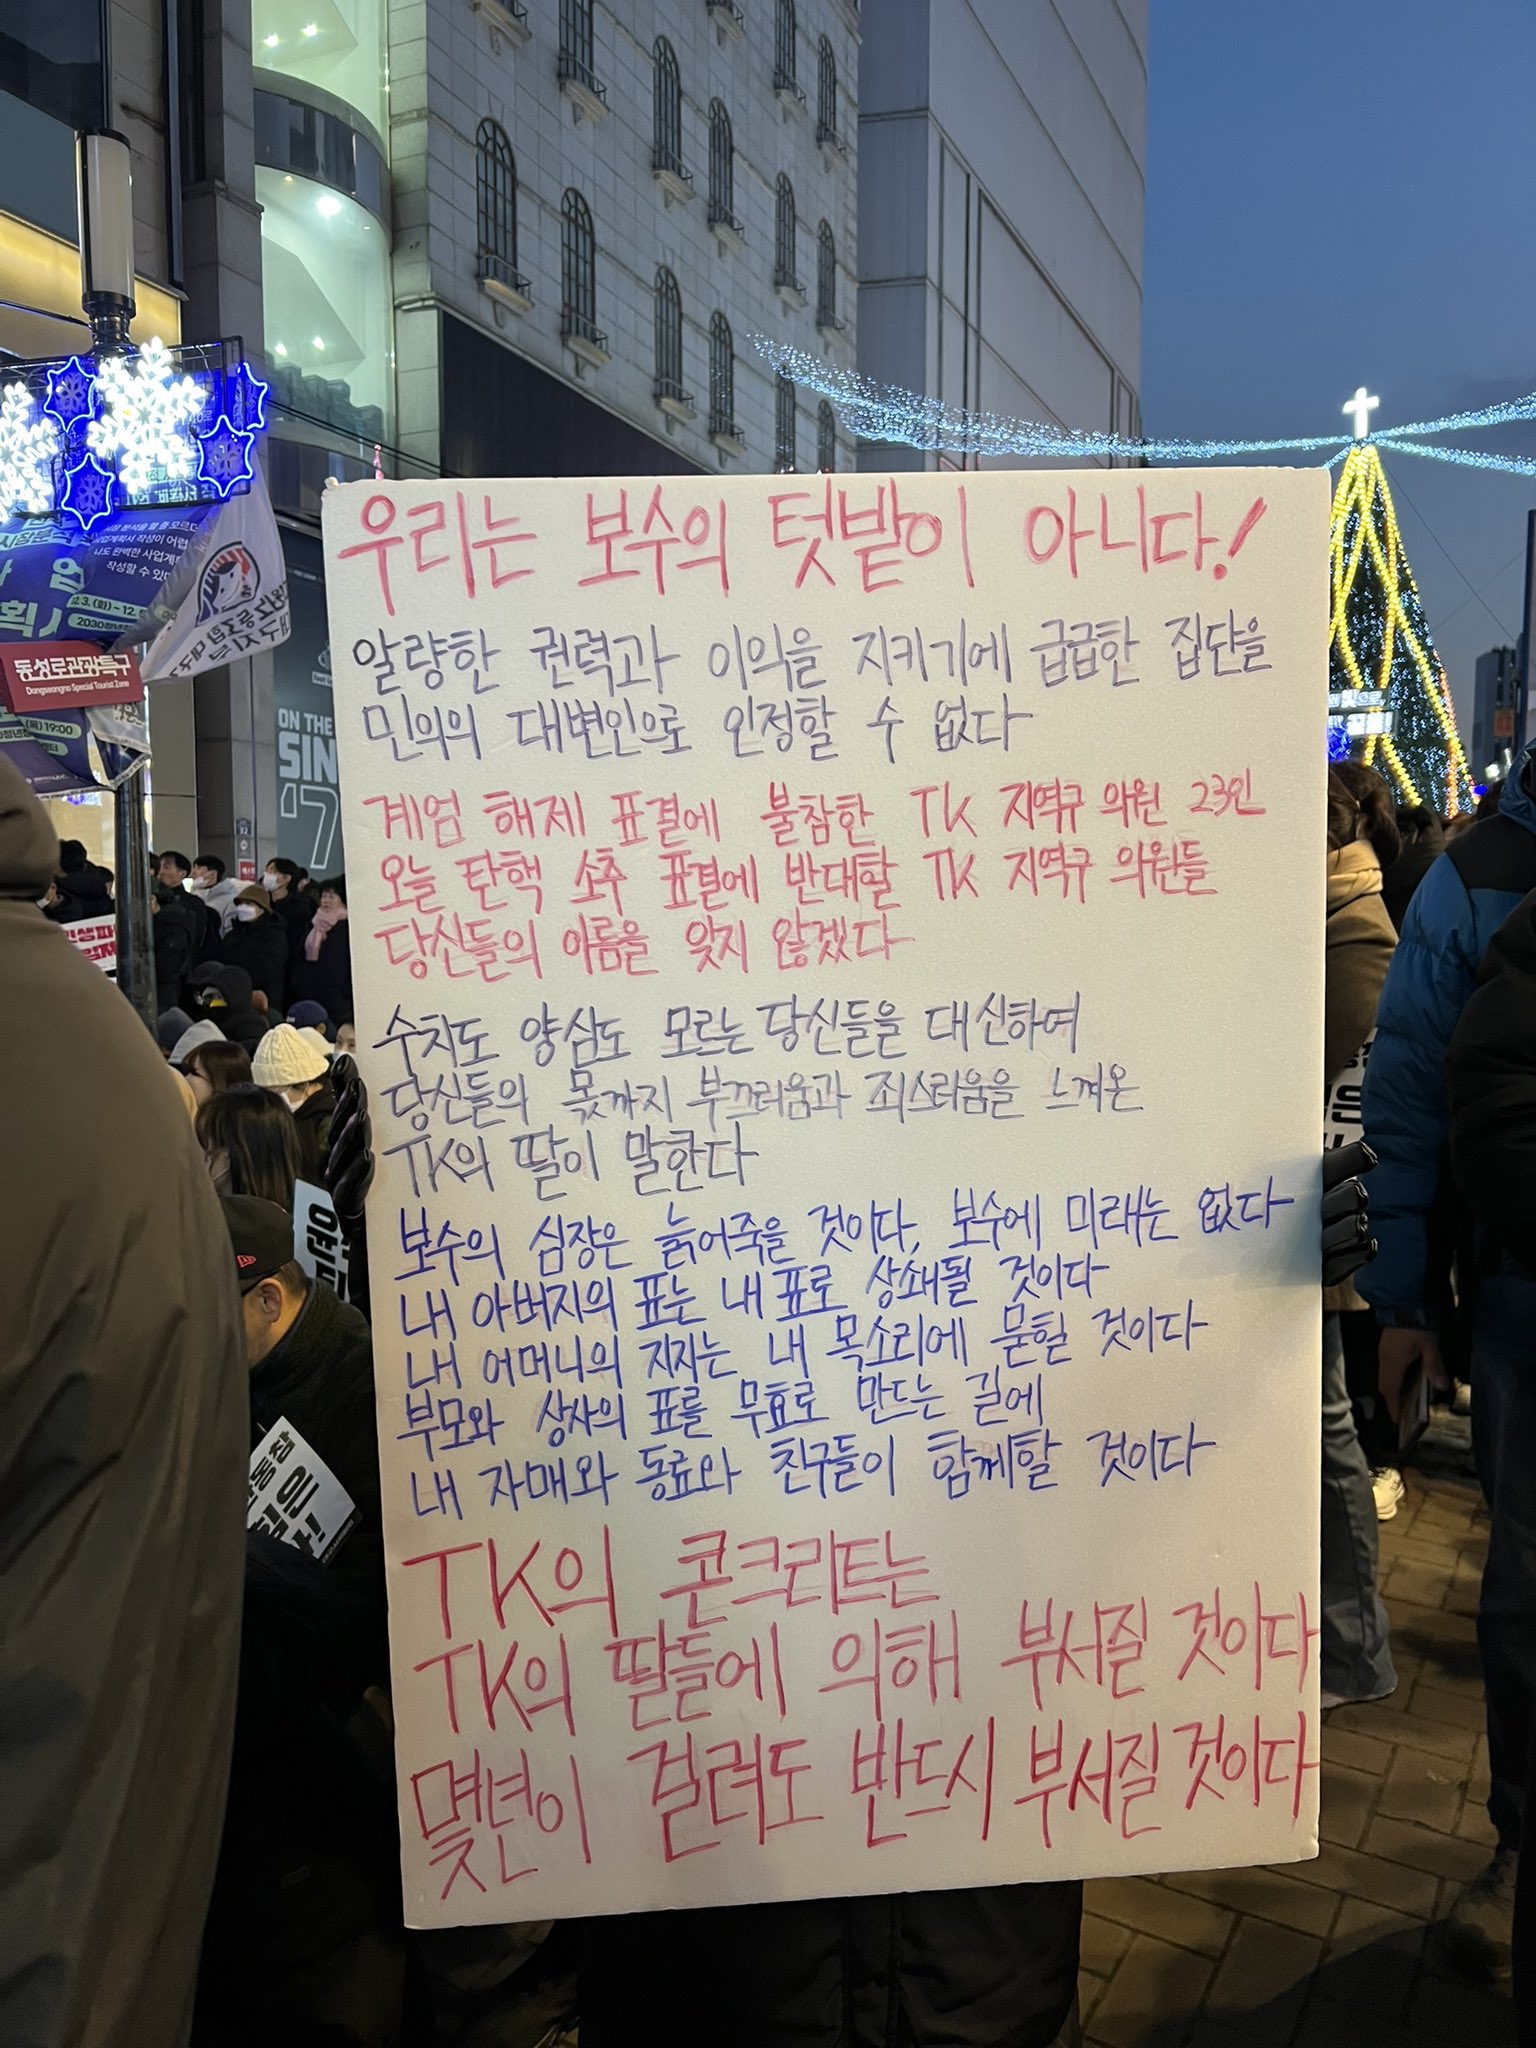 우리는 보수의 텃밭이 아니다!
알량한 권력과 이익을 지키기에 급급한 집단을
민의의 대변인으로 인정할 수 없다
계엄 해제 표결에 불참한 TK 지역구 의원 23인
오늘 탄핵 소추 표결에 반대할 TK 지역구 의원들
당신들의 이름을 잊지 않겠다
수치도 양심도 모르는 당신들을 대신하여
당신들의 몫까지 부끄러움과 죄스러움을 느껴온
TK의 딸이 말한다
보수의 심장은 늙어죽을 것이다, 보수에 미래는 없다
내 아버지의 표는 내 표로 상쇄될 것이다
내 어머니의 지지는 내 목소리에 묻힐 것이다
부모와 상사의 표를 무효로 만드는 길에
내 자매와 동료와 친구들이 함께할 것이다
TK의 콘크리트는
TK의 딸들에 의해 부서질 것이다
몇년이 걸려도 반드시 부서질 것이다
동성로관광특구
Dongseongno Special Tourist Zone
나도 완벽한 사업계
작성할 수 있다
(목) 19:00
ON THE
SIN
'7